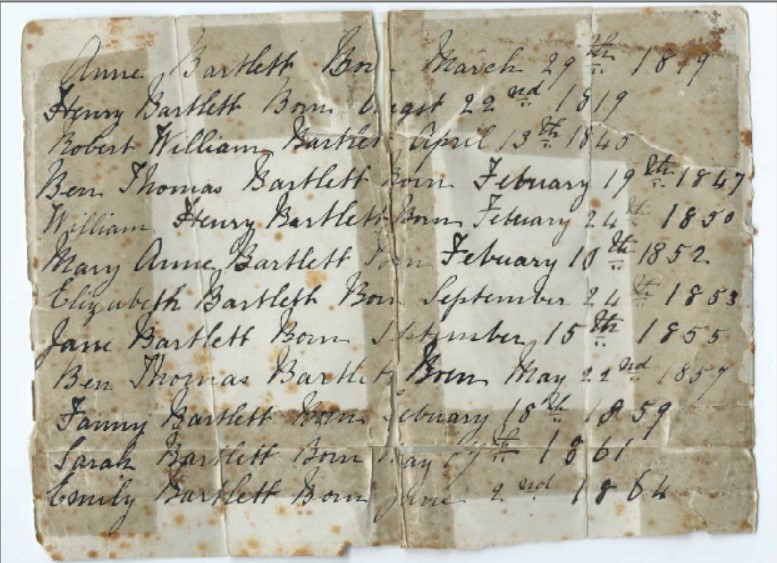 Anne Bartlett Born March 29th 1819
Henry Bartlett Born August 22nd 1819
Robert William Bartlett April 13th 1845
Ben Thomas Bartlett Born Febuary 19th 1847
William Henry Bartlett Born Febuary 24th 1850
Mary Anne Bartlett Born Febuary 10th 1852
Elizabeth Bartlett Born September 24th 1853
Jane Bartlett Born September 15th 1855
Ben Thomas Bartlett Born May 22nd 1857
Fanny Bartlett Born Febuary 18th 1859
Sarah Bartlett Born May th 1861
Emily Bartlett Born June 2nd 1864